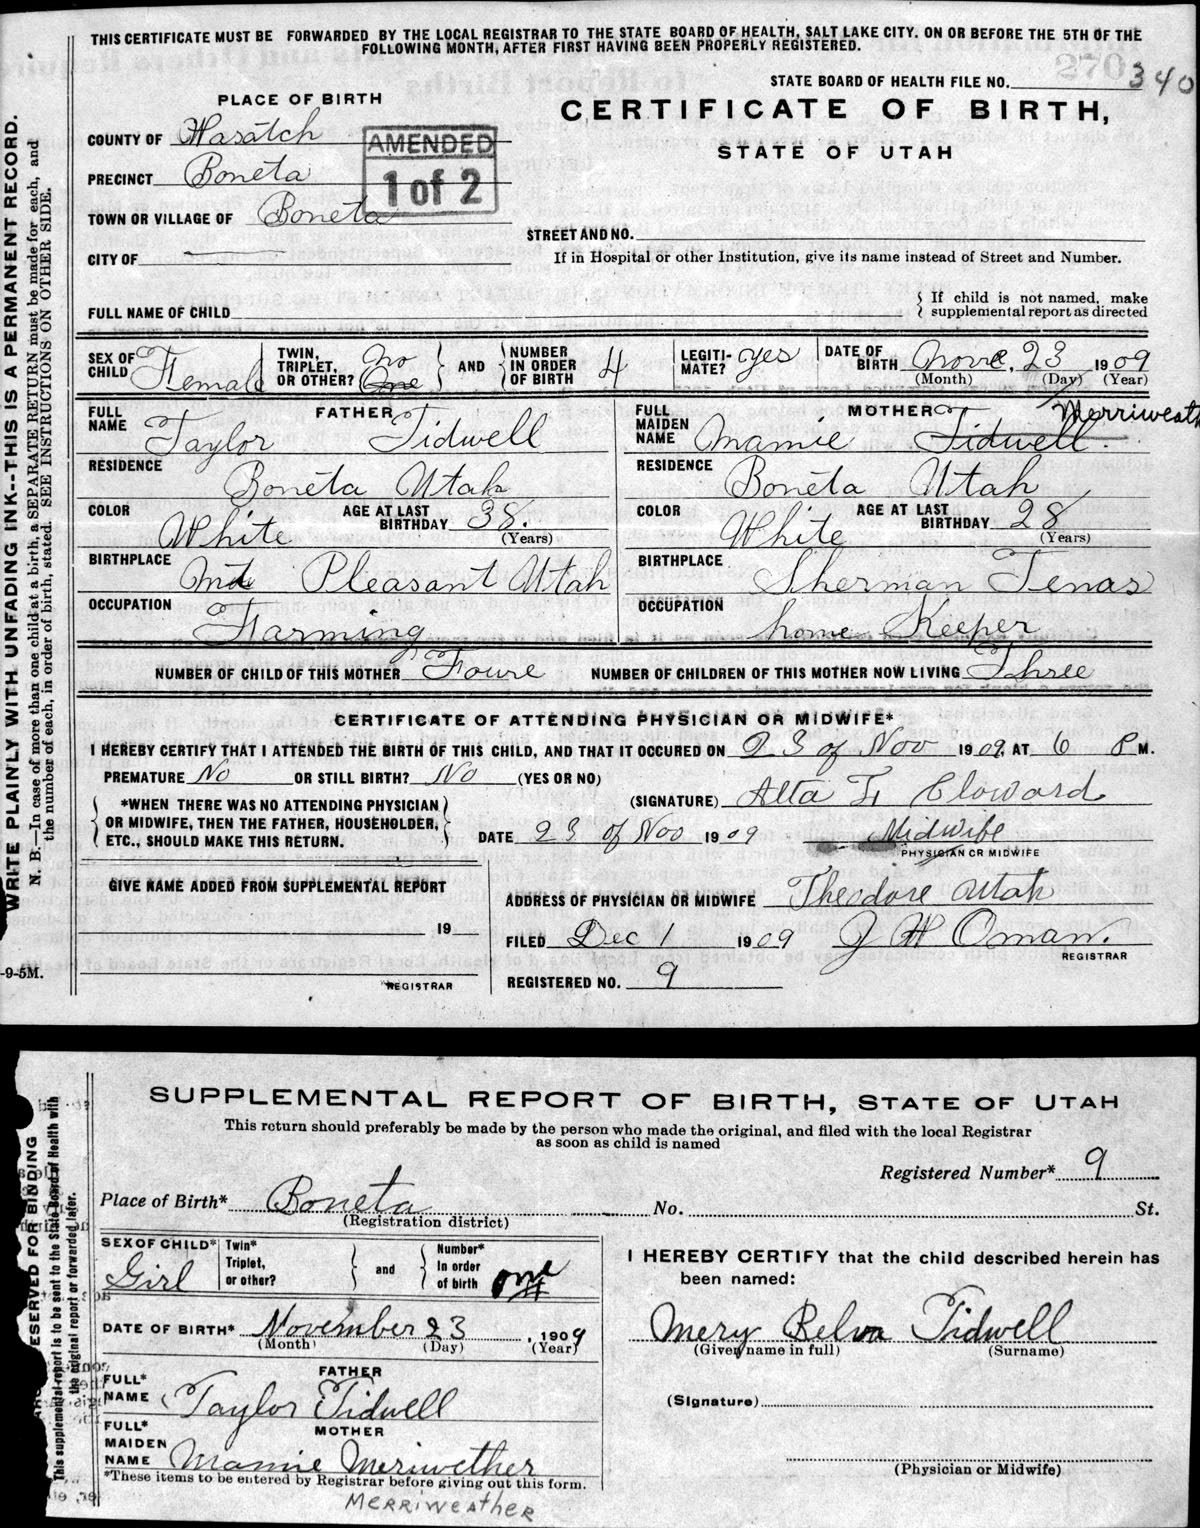 THIS CERTIFICATE MUST BE FORWARDED BY THE LOCAL REGISTRAR TO THE STATE BOARD OF HEALTH, SALT LAKE CITY. ON OR BEFORE THE 5TH OF THE
FOLLOWING MONTH, AFTER FIRST HAVING BEEN PROPERLY REGISTERED.
STATE BOARD OF HEALTH FILE NO. 270 340
PLACE OF BIRTH
CERTIFICATE OF BIRTH,
STATE OF UTAH
COUNTY OF Wasatch
AMENDED
1 of 2
PRECINCT Boneta
TOWN OR VILLAGE OF Boneta
STREET AND NO.
CITY OF
If in Hospital or other Institution, give its name instead of Street and Number.
FULL NAME OF CHILD
{ If child is not named, make
supplemental report as directed
SEX OF CHILD Female
TWIN, TRIPLET, OR OTHER? No One
} AND {
NUMBER IN ORDER OF BIRTH 4
LEGITI-MATE? yes
DATE OF BIRTH Nove, 23 1909
(Month) (Day) (Year)
FATHER
FULL NAME Taylor Tidwell
RESIDENCE Boneta Utah
COLOR White
AGE AT LAST BIRTHDAY 38. (Years)
BIRTHPLACE Mt Pleasant Utah
OCCUPATION Farming
MOTHER
FULL MAIDEN NAME Mamie Tidwell Merriweath
RESIDENCE Boneta Utah
COLOR White
AGE AT LAST BIRTHDAY 28 (Years)
BIRTHPLACE Sherman Texas
OCCUPATION home Keeper
NUMBER OF CHILD OF THIS MOTHER Foure NUMBER OF CHILDREN OF THIS MOTHER NOW LIVING Three
CERTIFICATE OF ATTENDING PHYSICIAN OR MIDWIFE*
I HEREBY CERTIFY THAT I ATTENDED THE BIRTH OF THIS CHILD, AND THAT IT OCCURED ON 23 of Nov 1909, AT 6 P M.
PREMATURE No OR STILL BIRTH? No (YES OR NO)
(SIGNATURE) Alta L Cloward
{ *WHEN THERE WAS NO ATTENDING PHYSICIAN
OR MIDWIFE, THEN THE FATHER, HOUSEHOLDER,
ETC., SHOULD MAKE THIS RETURN. }
DATE 23 of Nov 1909 Midwife
PHYSICIAN OR MIDWIFE
GIVE NAME ADDED FROM SUPPLEMENTAL REPORT
19
REGISTRAR
ADDRESS OF PHYSICIAN OR MIDWIFE Theodore Utah
FILED Dec 1 1909 J H Oman.
REGISTRAR
REGISTERED NO. 9
WRITE PLAINLY WITH UNFADING INK--THIS IS A PERMANENT RECORD.
N. B.—In case of more than one child at a birth, a SEPARATE RETURN must be made for each, and
the number of each, in order of birth, stated. SEE INSTRUCTIONS ON OTHER SIDE.
-9-5M.
SUPPLEMENTAL REPORT OF BIRTH, STATE OF UTAH
This return should preferably be made by the person who made the original, and filed with the local Registrar
as soon as child is named
Registered Number* 9
Place of Birth* Boneta No. St.
(Registration district)
SEX OF CHILD* Girl
Twin* Triplet, or other?
} and {
Number* In order of birth one
DATE OF BIRTH* November 23, 1909
(Month) (Day) (Year)
FATHER
FULL* NAME Taylor Tidwell
MOTHER
FULL* MAIDEN NAME Mamie Meriwether
*These items to be entered by Registrar before giving out this form.
MERRIWEATHER
I HEREBY CERTIFY that the child described herein has
been named:
Mery Belva Tidwell
(Given name in full) (Surname)
(Signature)
(Physician or Midwife)
RESERVED FOR BINDING
This supplemental report is to be sent to the State Board of Health with
the original report or forwarded later.